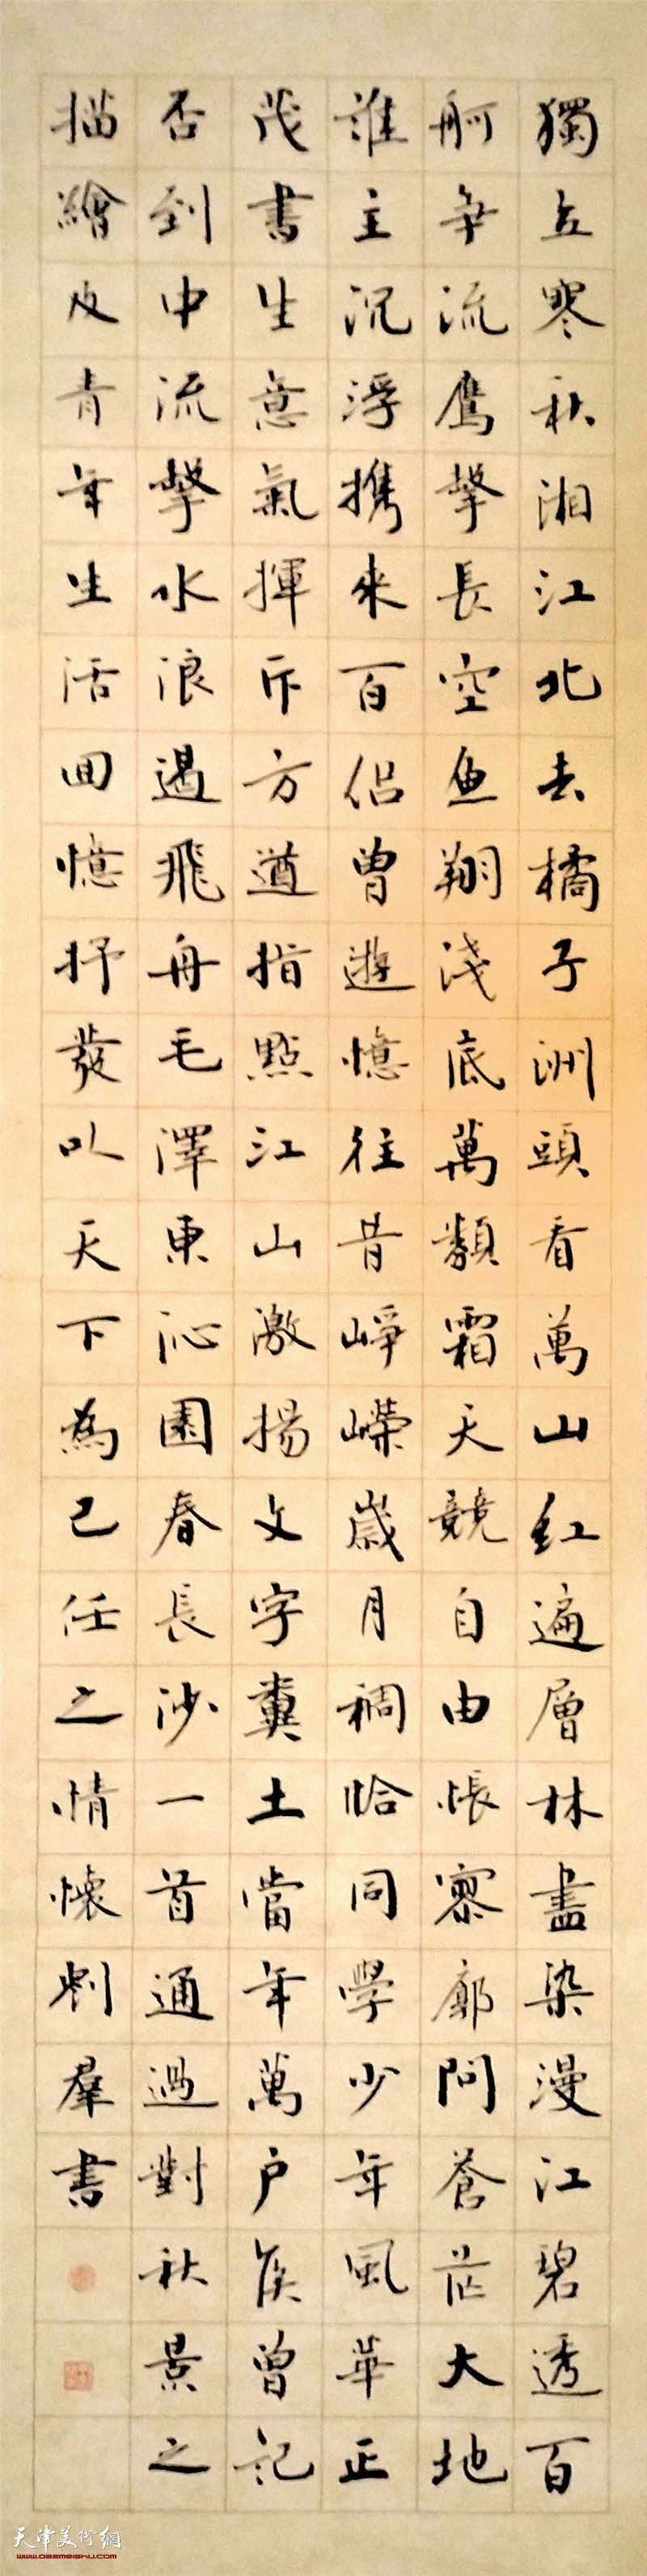 獨立寒秋湘江北去橘子洲頭看萬山紅遍層林盡染漫江碧透百
舸爭流鷹擊長空魚翔淺底萬類霜天競自由悵寥廓問蒼茫大地
誰主沉浮攜來百侶曾遊憶往昔崢嶸歲月稠恰同學少年風華正
茂書生意氣揮斥方遒指點江山激揚文字糞土當年萬戶侯曾記
否到中流擊水浪遏飛舟毛澤東沁園春長沙一首通過對秋景之
描繪及青年生活回憶抒發以天下為己任之情懷劉羣書
天津美術網
www.022meishu.com